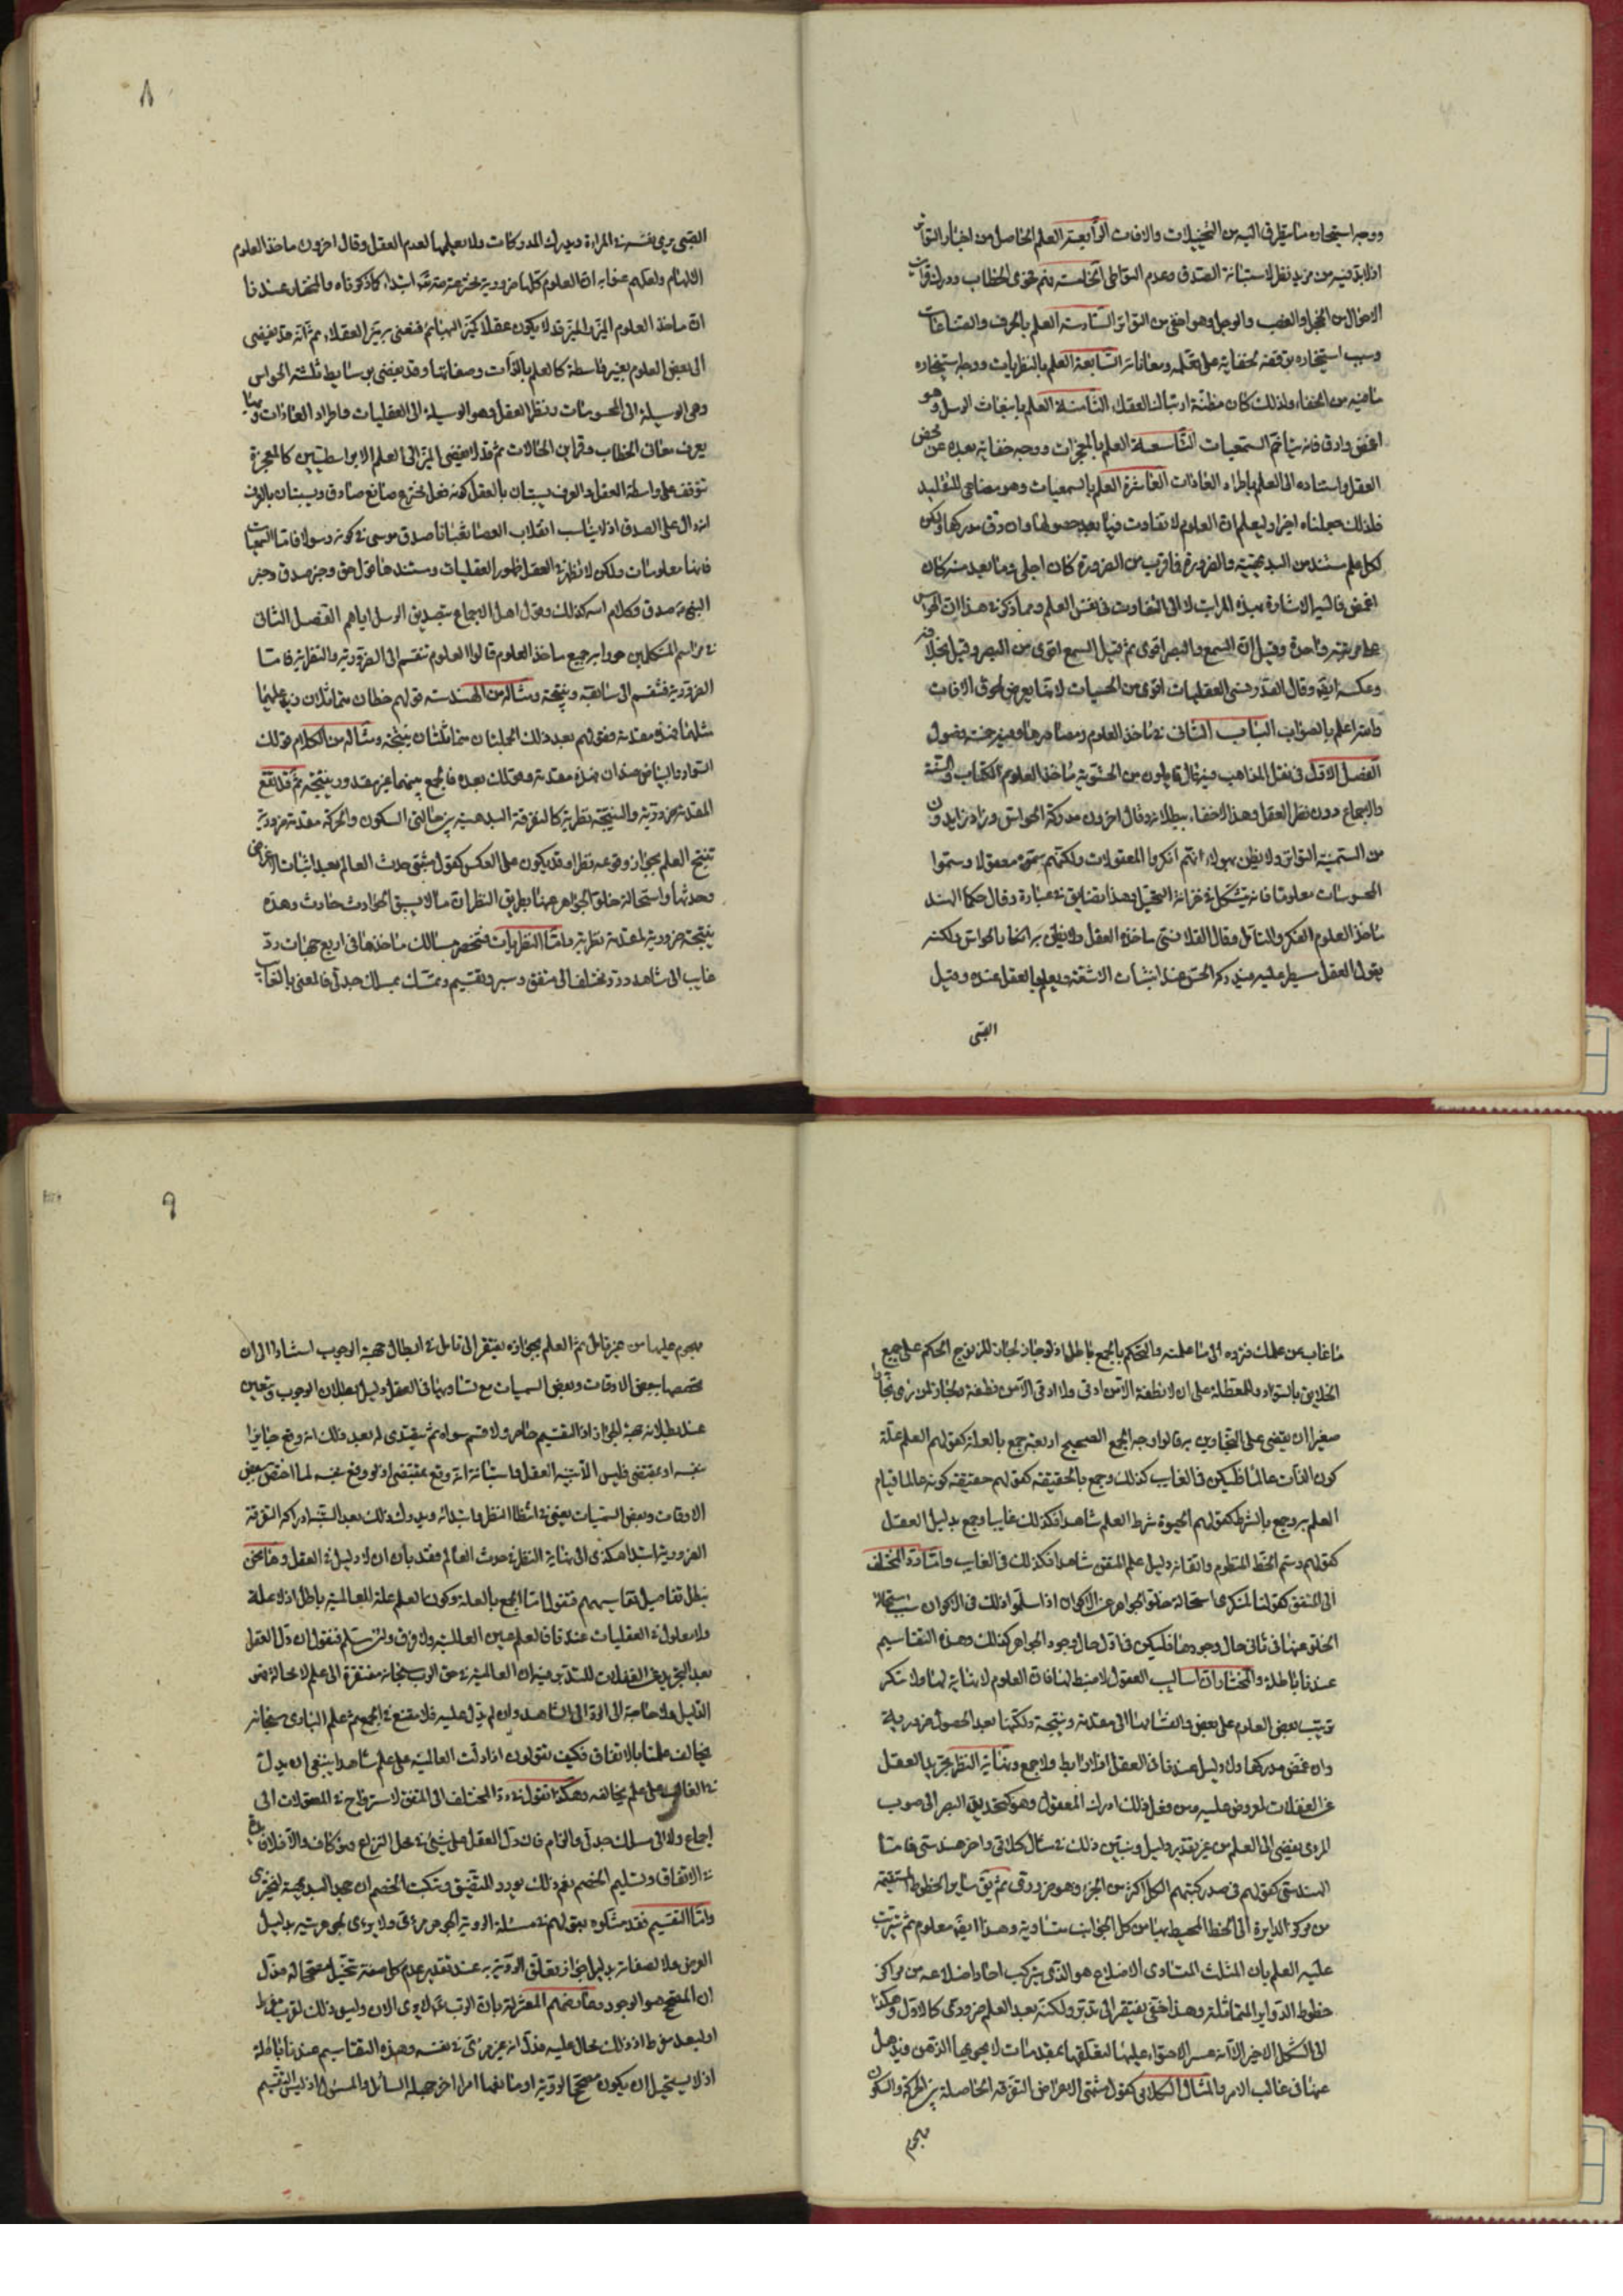 ووجه استيخاره ما يتطرق اليه من التخييلات والافات الرابعة العلم الحاصل من اخبار التواتر
اذ لا بد فيه من مزيد نظر لاستبانة الصدق وعدم التواطى الخامسة فهم فحوى الخطاب ودرك قرائن
الاحوال من الخجل والغضب والوجل وهو اخفى من التواتر السادسة العلم بالحرف والصناعات
وسبب استيخاره توقفه لخفايه على تعلمه ومعاناته السابعة العلم بالنظريات ووجه استيخاره
ما فيه من الخفاء ولذلك كان مظنة ارتباك العقل الثامنة العلم بانبعاث الرسل وهو
اغمق وادق فانه متاخم السمعيات التاسعة العلم بالمعجزات ووجه خفايه بعده عن محض
العقل واستناده الى العلم باطراد العادات العاشرة العلم بالسمعيات وهو مضاهى للتقليد
فلذلك جعلناه اخيرا وليعلم ان العلوم لا تفاوت فيها بعد حصولها وان دق مدركها ولكن
لكل علم مستند من البديهية والضرورة فما قرب من الضرورة كان اجلى وما بعد منه كان
اغمض فاليه الاشارة بهذه المراتب لا الى التفاوت في نفس العلم ومما ذكر في هذا ان الحواس
على مرتبة واحدة وقيل ان السمع والبصر اقوى ثم قيل السمع اقوى من البصر وقيل بخلافه
وعكسه ايضا وقال القلانسى العقليات اقوى من الحسيات لانها يعرض لطرق الافات
والله اعلم بالصواب الباب الثانى في ماخذ العلوم ومصادرها وفيه خمسة فصول
الفصل الاول في نقل المذاهب فيه قال قايلون من الحشوية ماخذ العلوم الكتاب والسنة
والاجماع دون نظر العقل وهذا لا خفاء ببطلانه وقال اخرون مدركه الحواس وزاد زايدون
من السمنية التواتر ولا يظن بهولاء انهم انكروا المعقولات ولكنهم سموه معقولا وسموا
المحسوسات معلوما فانه يتشكل في خزانة التخيل وهذا تضايق في عبارة وقال حكماء الهند
ماخذ العلوم الفكر والتامل وقال القلانسى ماخذه العقل ولا يظن به انكار الحواس ولكنه
يقول العقل مسيطر عليه فيدركه الحس عند انبثاث الاشعة ويعلمها العقل عنده وقيل
الصبى
٨
الصبى يرى نفسه في المراة ويدرك المدركات ولا يعلمها لعدم العقل وقال اخرون ماخذ العلوم
الالهام ولعلهم عنوا به ان العلوم كلها ضرورية مخترعة لله تعالى ابتداء كما ذكرناه والمختار عندنا
ان ماخذ العلوم الميز والميز قد لا يكون عقلا كميز البهائم فنعنى به ميز العقلاء ثم انه قد يفيضى
الى بعض العلوم بغير واسطة كالعلم بالذات وصفاتها وقد يفضى بوسايط ثلثة الحواس
وهى الوسيلة الى المحسوسات ونظر العقل وهو الوسيلة الى العقليات واطراد العادات وبها
يعرف معانى الخطاب وقراين الحالات ثم قد لا يفضى الميز الى العلم الا بواسطتين كالمعجزة
تتوقف على واسطة العقل والعرف يستبان بالعقل كونه فعل مخترع صانع صادق ويستبان بالعرف
انه دال على الصدق اذ لا يناسب انقلاب العصا ثعبانا صدق موسى في كونه رسولا فاما السمعيات
فانها معلومات ولكن لا تظهر في العقل ظهور العقليات ومستندها قول حق وخبر صدق وخبر
النبى صدق وكلام الله كذلك وقول اهل الاجماع بتصديق الرسل اياهم الفصل الثانى
في مراسم المتكلمين حول جميع ماخذ العلوم قالوا العلوم تنقسم الى الضرورية والنظرية فاما
الضرورية فتنقسم الى سابقة ونتيجة ومثاله من الهندسة قولهم خطان متماثلان زيد عليهما
مثلهما فهذه مقدمة وقولهم بعد ذلك الجملتان متماثلتان نتيجة ومثاله من الكلام قولك
السواد والبياض ضدان هذه مقدمة وقولك بعده فالجمع بينهما غير مقدور نتيجة ثم قد تقع
المقدمة ضرورية والنتيجة نظرية كالتفرقة البديهية بين حالتى السكون والحركة مقدمة ضرورية
تنتج العلم بجواز وقوعه نظرا وقد يكون على العكس كقول مثبتى حدث العالم بعد اثبات الاعراض
وحدثها واستحالة خلو الجواهر عنها بطريق النظر ان ما لا يسبق الحوادث حادث وهذه
نتيجة ضرورية لمقدمة نظرية واما النظريات فتنحصر مسالك ماخذها في اربع جهات رد
غايب الى شاهد ورد مختلف الى متفق وسبر وتقسيم وتمسك بمسلك جدلى فالمعنى بالغايب
ما غاب عن علمك فترده الى ما علمته والتحكم بالجمع باطل اذ لو جاز لجاز للزنوج الحكم على جميع
الخلايق بالسواد وللمعطلة على ان لا نطفة الا من ادمى ولا ادمى الا من نطفة ولجاز لمن رمى بحجار
صغيرا ان يقضى على التجاوين به قالوا وجه الجمع الصحيح اربعة جمع بالعلة كقولهم العلم علة
كون الذات عالما فليكن في الغايب كذلك وجمع بالحقيقة كقولهم حقيقة كونه عالما قيام
العلم به وجمع بالشرط كقولهم الحيوة شرط العلم شاهدا فكذلك غايبا وجمع بدليل العقل
كقولهم رسم الخط المنظوم واتقانه دليل علم المتقن شاهدا فكذلك في الغايب واما رد المختلف
الى المتفق كقولنا لمنكر استحالة خلو الجواهر عن الالوان اذا سلموا ذلك في الاكوان سبب استحالة
الخلو عنها في ثانى حال وجودها فليكن في اول حال وجود الجواهر كذلك وهذه التقاسيم
عندنا باطلة والمختار ان اساليب العقول لا ضبط لها فان العلوم لا نهاية لها ولا ننكر
ترتيب بعض العلوم على بعض وانقسامها الى مقدمة ونتيجة ولكنها بعد الحصول ضرورية
وان غمض مدركها ولا دليل عندنا في العقل اذ لا رابط ولا جمع ونهاية النظر تجريد العقل
عن الغفلات لعروض عليه ومن فعل ذلك ادرك المعقول وهو كتحديق البصر الى صوب
المرئى يفضى الى العلم من غير تقدير دليل ونبين ذلك في مثال كلامى واخر هندسى فاما
الهندسى كقولهم في صدر كتبهم الكل اكثر من الجزء وهو ضرورى ثم تبقى ساير الخطوط المستقيمة
من مركز الدايرة الى الخط المحيط بها من كل الجوانب متساوية وهذا ايضا معلوم ثم يترتب
عليه العلم بان المثلث المتساوى الاضلاع هو الذى يتركب احاد اضلاعه من مراكز
خطوط الدواير المتماثلة وهذا اخفى يفتقر الى تدبر ولكنه بعد العلم ضرورى كالاول وهكذا
الى الشكل الاخير الا انه عسر الاحتواء عليها لتعلقها بمقدمات لا يحويها الذهن ويذهل
عنها في غالب الامر والمثال الكلامى كقول مثبتى الاعراض التفرقة الحاصلة بين الحركة والسكون
مهجوم
٩
مهجوم عليها من غير تامل ثم العلم بجوازه يفتقر الى تامل في ابطال جهة الوجوب استنادا الى ان
تخصصها ببعض الاوقات وبعض السميات مع تساويها في العقل دليل بطلان الوجوب ويتعين
عند بطلانه جهة الجواز اذ التقسيم حاصر ولا قسم سواه ثم يبتدى له بعد ذلك انه وقع جايزا
بنفسه او بمقتضى فليس الا تنبيه العقل واستبانة انه وقع بمقتضى اذ لو وقع بنفسه لما اختص ببعض
الاوقات وبعض السميات يعنى في انتظام النظر وابتدائه ويدرك ذلك بعد التنبه ادراكه التفرقة
الضرورية ابتدا هكذى الى نهاية النظر في حدث العالم فقد بان ان لا دليل في العقل وها نحن
نبطل تفاصيل تقاسيمهم فنقول اما الجمع بالعلة وكون العلم علة للعالمية باطل اذ لا علة
ولا معلول في العقليات عندنا فالعلم عين العالمية ولا فرق ولئن سلم فنقول ان دل العقل
بعد التجريد عن الغفلات للمتدبر فيه ان العالمية في حق الرب سبحانه مفتقرة الى علم لا محالة فهو
الدليل ولا حاجة الى الرد الى الشاهد وان لم يدل عليه فلا مقنع في الجمع ثم علم البارى سبحانه
يخالف علمنا بالاتفاق فكيف تقولون اذا دلت العالمية على علم شاهدا ينبغى ان يدل
في الغائب على علم يخالفه وهكذا نقول في رد المختلف الى المتفق لا استرواح في المعقولات الى
اجماع ولا الى مسلك جدلى والزام فان دل العقل على شئ في محل النزاع فهو كاف والا فلا
في الاتفاق وتسليم الخصم نعم ذلك يورد للتضييق وتبكيت الخصم ان جحد البديهية لخزى
واما التقسيم فقد مثلوه بقولهم في مسئلة الروية الجوهر مرئى ولا يرى لجوهريته بدليل
العرض ولا لصفاته بدليل جواز تعلق الرؤية به عند تقدير عدم كل صفة تخيل مصححا له فدل
ان المصحح هو الوجود وعارضهم المعتزلة بان الرب تعالى لا يرى الان وليس ذلك لقرب مفرط
او لبعد مفرط اذ ذلك محال عليه فدل انه غير مرئى في نفسه وهذه التقاسيم عندنا باطلة
اذ لا يستحيل ان يكون مصحح الروية او مانعها امرا اخر جهله السائل والمسئول اذ ليس التقسيم